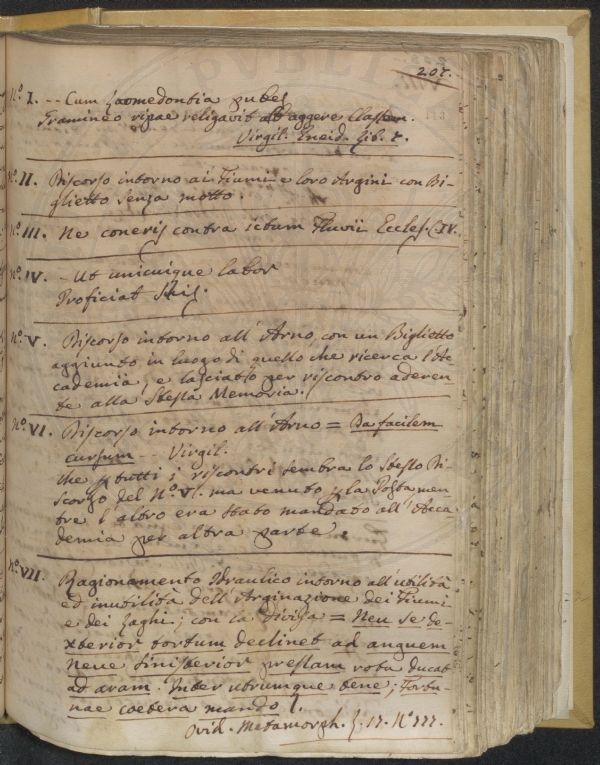 207.
N.º I. -- Cum Laomedontia pubes
Gramineo ripae religavit ab aggere Classem.
Virgil. Eneid. Lib. 7.
N.º II. Discorso intorno ai Fiumi e loro Argini con Bi-
glietto senza motto.
N.º III. Ne coneris contra ictum Fluvii Eccles. C. IV.
N.º IV. - Ut unicuique labor
Proficiat suis.
N.º V. Discorso intorno all' Arno, con un Biglietto
aggiunto in luogo di quello, che ricerca l'Ac
cademia, e lasciato per riscontro aderen
te alla stessa Memoria.
N.º VI. Discorso intorno all' Arno = Da facilem
cursum -- Virgil.
che p tutti i riscontri sembra lo stesso Di-
scorso del N.º V. ma venuto p la Posta men-
tre l'altro era stato mandato all' Acca
demia per altra parte.
N.º VII. Ragionamento Idraulico intorno all' utilità
ed inutilità dell' Arginazione dei Fiumi
e dei Laghi; con la Divisa = Neu se de-
xterior tortum declinet ad anguem
Neue sinisterior pressam rota ducat
ad aram. Inter utrumque tene; Fortu-
nae coetera mando
Ovid. Metamorph.
PUBLI